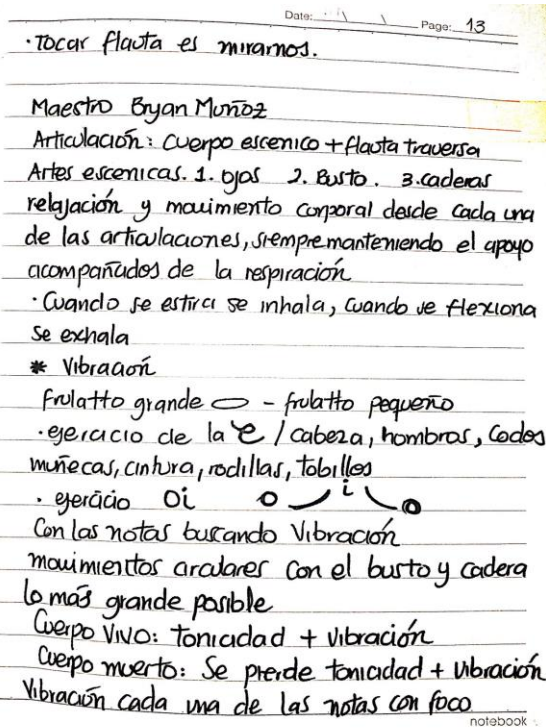 Date: Page: 13
· Tocar flauta es mirarnos.
Maestro Bryan Muñoz
Articulación: Cuerpo escenico + flauta traversa
Artes escenicas. 1. Ojos 2. Busto. 3. caderas
relajación y movimiento corporal desde cada una
de las articulaciones, siempre manteniendo el apoyo
acompañados de la respiración
· Cuando se estira se inhala, cuando se flexiona
se exhala
* Vibración
frulatto grande - frulatto pequeño
· ejercicio de la e / cabeza, hombros, codos
muñecas, cintura, rodillas, tobillos
· ejercicio Oi o i o
Con las notas buscando Vibración
movimientos circulares con el busto y cadera
lo más grande posible
Cuerpo vivo: tonicidad + vibración
Cuerpo muerto: Se pierde tonicidad + vibración
Vibración cada una de las notas con foco
notebook